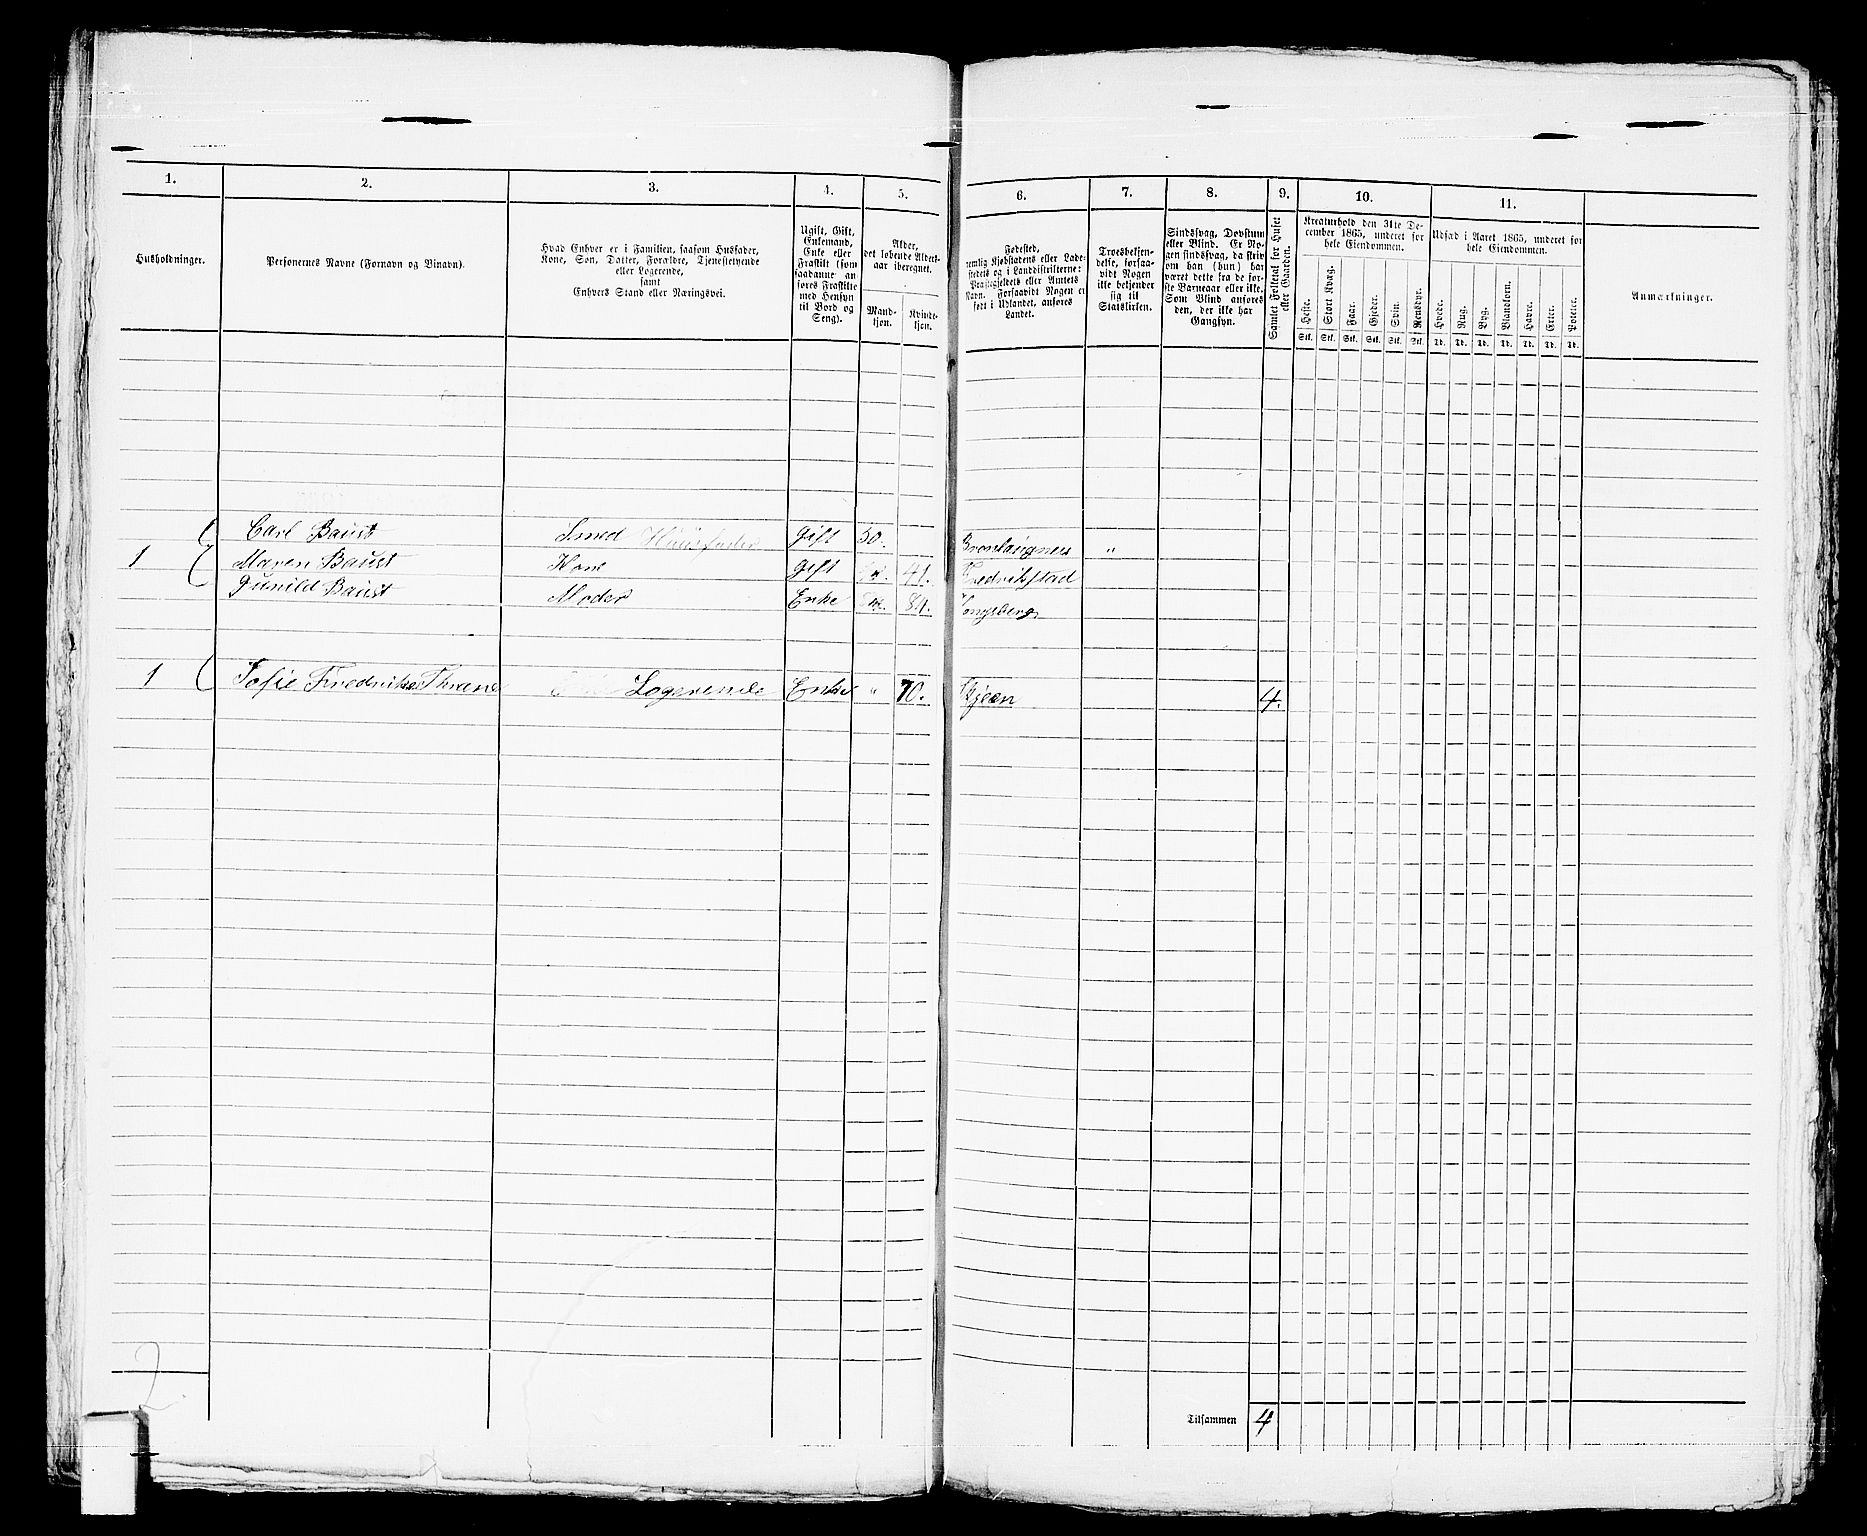 1. 2. 3. 4. 5. 6. 7. 8. 9. 10. 11.
Husholdninger.
Personernes Navne (Fornavn og Binavn).
Hvad Enhver er i Familien, saasom Husfader,
Kone, Søn, Datter, Forældre, Tjenestetyende
eller Logerende,
samt
Enhvers Stand eller Næringsvei.
Ugift, Gift,
Enkemand,
Enke eller
Fraskilt (som
saadanne an-
føres Fraskilte
med Hensyn
til Bord og
Seng).
Alder,
det løbende Alders-
aar iberegnet.
Mand-
kjøn.
Kvinde-
kjøn.
Fødested,
nemlig Kjøbstadens eller Lade-
stedets og i Landdistrikterne:
Præstegjeldets eller Amtets
Navn. Forsaavidt Nogen er
født i Udlandet, anføres
Landet.
Troesbekjen-
delse, forsaa-
vidt Nogen
ikke bekjender
sig til
Statskirken.
Sindssvag, Døvstum
eller Blind. Er No-
gen sindssvag, da skriv
om han (hun) har
været dette fra de før-
ste Barneaar eller ikke.
Som Blind anføres
den, der ikke har
Gangsyn.
Samlet Folketal for Huset
eller Gaarden.
Kreaturhold den 31te De-
cember 1865, underet for
hele Eiendommen.
Heste. Stort Kvæg. Faar. Gjeder. Svin. Rensdyr.
Stk. Stk. Stk. Stk. Stk. Stk.
Udsæd i Aaret 1865, underet for
hele Eiendommen.
Hvede. Rug. Byg. Blandkorn. Havre. Erter. Poteter.
Td. Td. Td. Td. Td. Td. Td.
Anmærkninger.
Carl Baust Smed Huusfader Gift 50. "
1 Maren Baust Kone Gift 41. Fredrikstad
Gunild Baust Moder Enke 84. Kongsberg
1 Sofie Fredrikke Thrane Logerende Enke " 70. Skjeen 4.
2.
Tilsammen 4